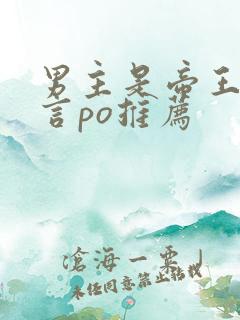 男主是帝王
言po推薦
滄海一粟
未经同意禁止转载